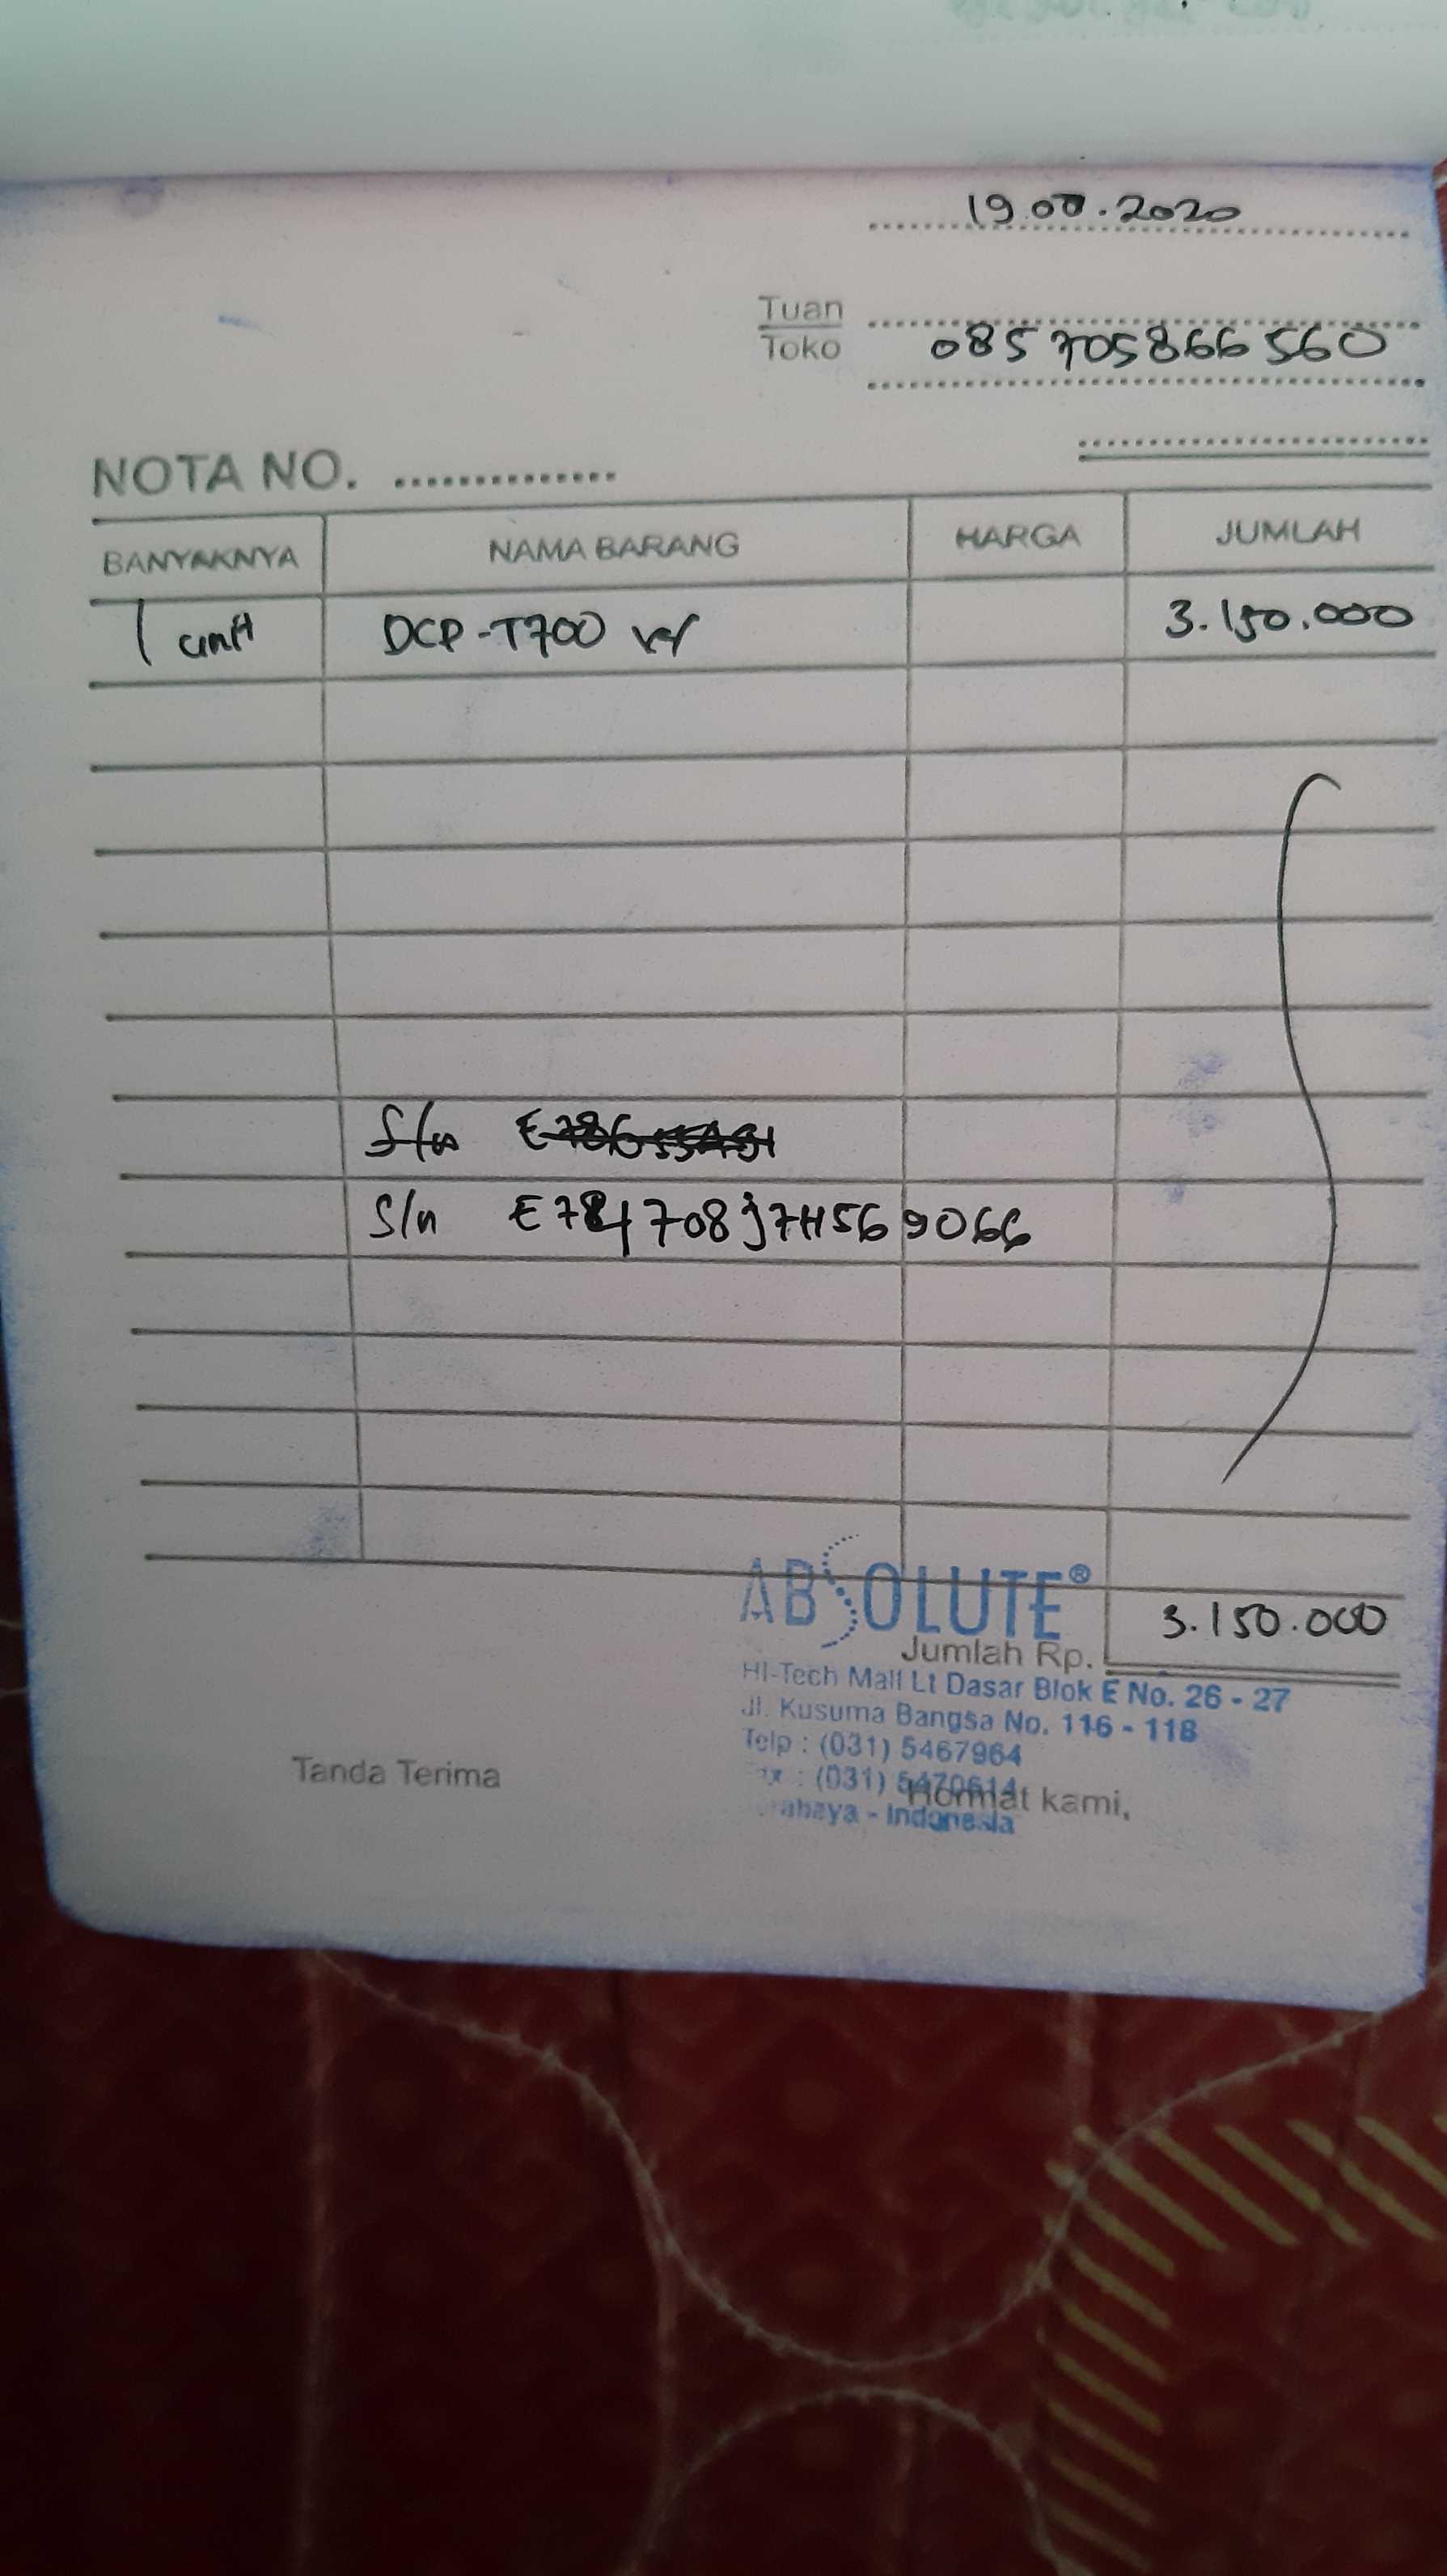 19.08.2020
Tuan
Toko 085705866560
NOTA NO. ..............
BANYAKNYA NAMA BARANG HARGA JUMLAH
1 unit DCP-T700 w 3.150.000
S/n
S/n E781708J7H569066
ABSOLUTE®
3.150.000
Jumlah Rp.
HI-Tech Mall Lt Dasar Blok E No. 26 - 27
Jl. Kusuma Bangsa No. 116 - 118
Telp : (031) 5467964
Tanda Terima
: (031) 5470614
Hormat kami,
- Indonesia